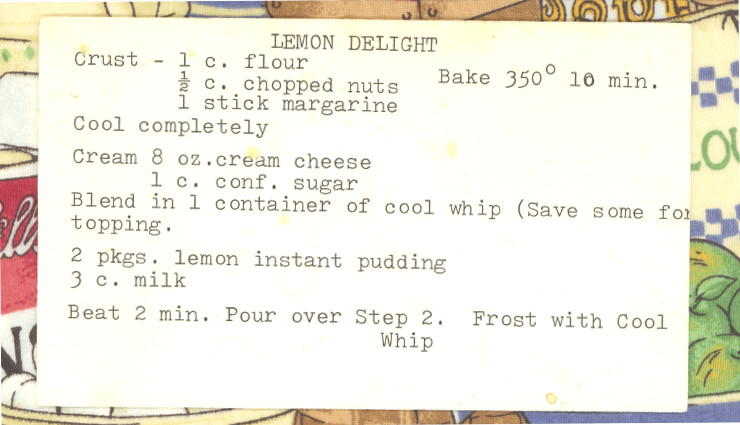 LEMON DELIGHT
Crust - 1 c. flour
½ c. chopped nuts
Bake 350° 10 min.
1 stick margarine
Cool completely
Cream 8 oz.cream cheese
1 c. conf. sugar
Blend in 1 container of cool whip (Save some for
topping.
2 pkgs. lemon instant pudding
3 c. milk
Beat 2 min. Pour over Step 2. Frost with Cool
Whip